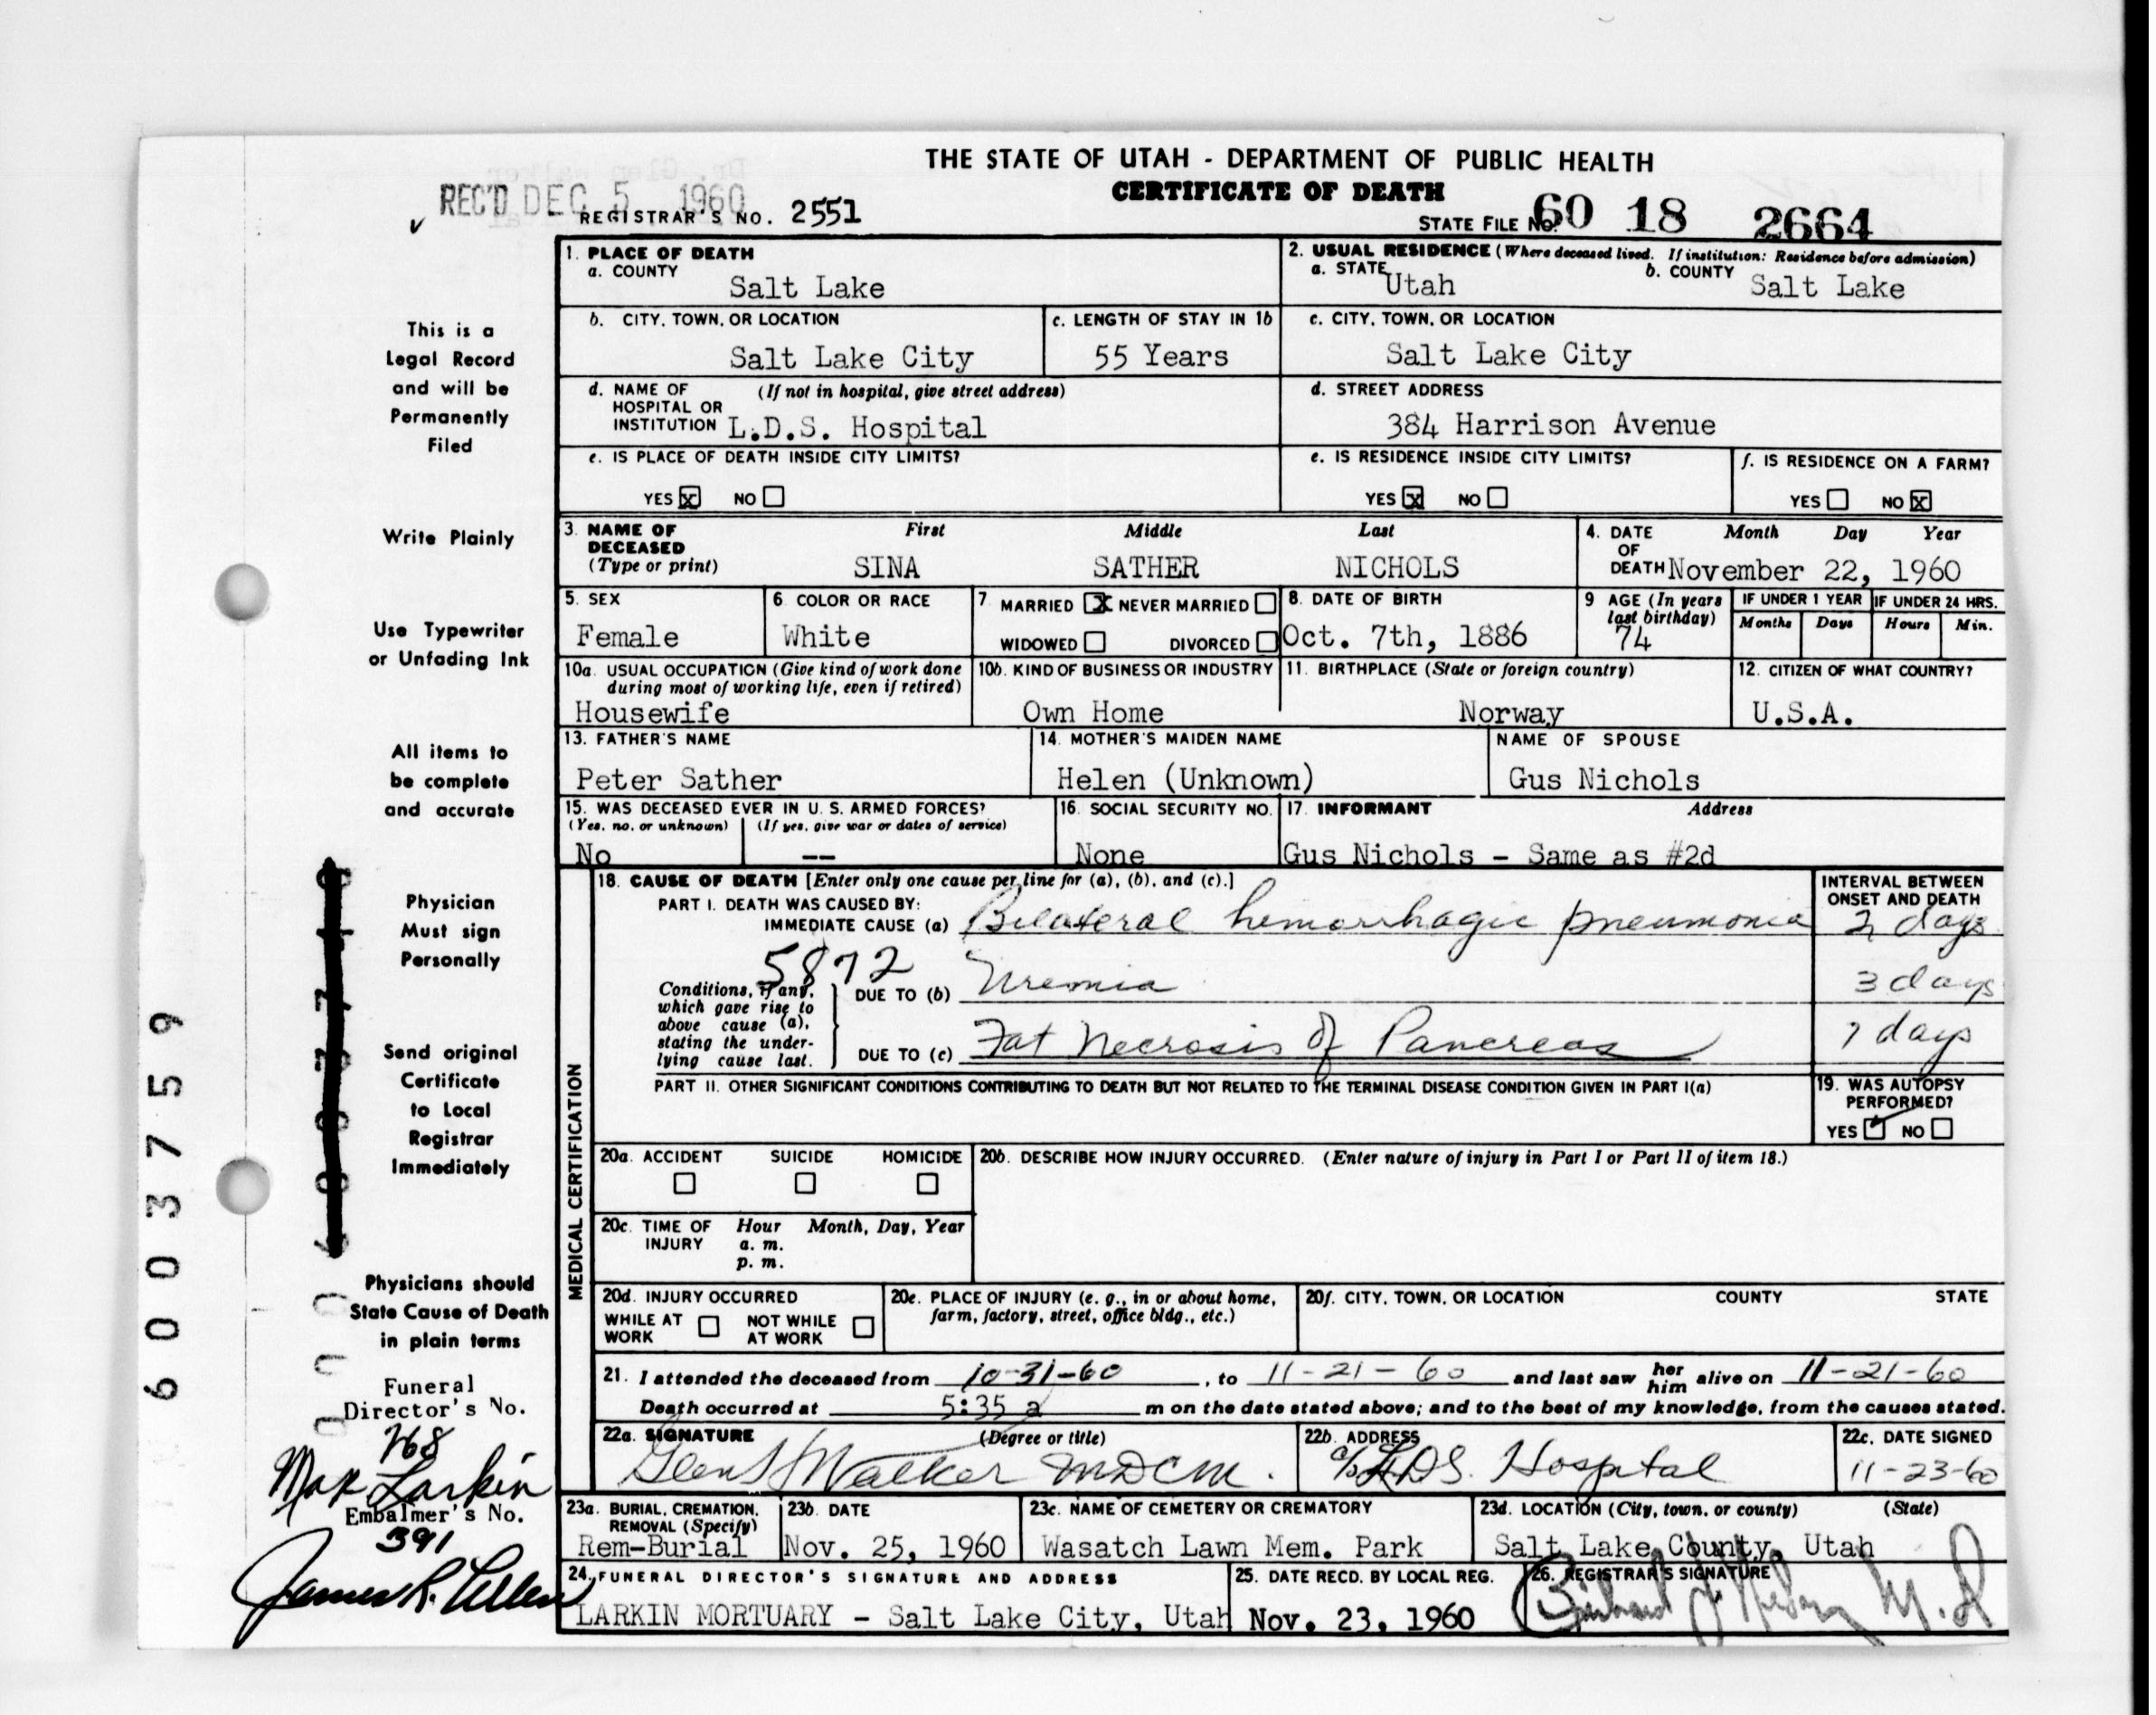 THE STATE OF UTAH - DEPARTMENT OF PUBLIC HEALTH
CERTIFICATE OF DEATH
REC'D DEC 5 1960
REGISTRAR'S NO. 2551
STATE FILE NO. 60 18 2664
1. PLACE OF DEATH
a. COUNTY
Salt Lake
2. USUAL RESIDENCE (Where deceased lived. If institution: Residence before admission)
a. STATE Utah
b. COUNTY Salt Lake
b. CITY, TOWN, OR LOCATION
Salt Lake City
c. LENGTH OF STAY IN 1b
55 Years
c. CITY, TOWN, OR LOCATION
Salt Lake City
d. NAME OF HOSPITAL OR INSTITUTION (If not in hospital, give street address)
L.D.S. Hospital
d. STREET ADDRESS
384 Harrison Avenue
e. IS PLACE OF DEATH INSIDE CITY LIMITS?
YES X NO
e. IS RESIDENCE INSIDE CITY LIMITS?
YES X NO
f. IS RESIDENCE ON A FARM?
YES NO X
3. NAME OF DECEASED (Type or print)
First Middle Last
SINA SATHER NICHOLS
4. DATE OF DEATH Month Day Year
November 22, 1960
5. SEX
Female
6. COLOR OR RACE
White
7. MARRIED X NEVER MARRIED
WIDOWED DIVORCED
8. DATE OF BIRTH
Oct. 7th, 1886
9 AGE (In years last birthday)
74
IF UNDER 1 YEAR
Months Days
IF UNDER 24 HRS.
Hours Min.
10a. USUAL OCCUPATION (Give kind of work done during most of working life, even if retired)
Housewife
10b. KIND OF BUSINESS OR INDUSTRY
Own Home
11. BIRTHPLACE (State or foreign country)
Norway
12. CITIZEN OF WHAT COUNTRY?
U.S.A.
13. FATHER'S NAME
Peter Sather
14. MOTHER'S MAIDEN NAME
Helen (Unknown)
NAME OF SPOUSE
Gus Nichols
15. WAS DECEASED EVER IN U. S. ARMED FORCES?
(Yes, no, or unknown) (If yes, give war or dates of service)
No --
16. SOCIAL SECURITY NO.
None
17. INFORMANT Address
Gus Nichols - Same as #2d
MEDICAL CERTIFICATION
18. CAUSE OF DEATH [Enter only one cause per line for (a), (b), and (c).]
INTERVAL BETWEEN ONSET AND DEATH
PART I. DEATH WAS CAUSED BY:
IMMEDIATE CAUSE (a) Bilateral hemorrhagic pneumonia 2 days
5872
Conditions, if any, which gave rise to above cause (a), stating the underlying cause last.
DUE TO (b) Uremia 3 days
DUE TO (c) Fat Necrosis of Pancreas 7 days
PART II. OTHER SIGNIFICANT CONDITIONS CONTRIBUTING TO DEATH BUT NOT RELATED TO THE TERMINAL DISEASE CONDITION GIVEN IN PART I(a)
19. WAS AUTOPSY PERFORMED?
YES ✓ NO
20a. ACCIDENT SUICIDE HOMICIDE
20b. DESCRIBE HOW INJURY OCCURRED. (Enter nature of injury in Part I or Part II of item 18.)
20c. TIME OF INJURY Hour a. m. p. m. Month, Day, Year
20d. INJURY OCCURRED
WHILE AT WORK NOT WHILE AT WORK
20e. PLACE OF INJURY (e. g., in or about home, farm, factory, street, office bldg., etc.)
20f. CITY, TOWN, OR LOCATION COUNTY STATE
21. I attended the deceased from 10-31-60, to 11-21-60 and last saw her him alive on 11-21-60
Death occurred at 5:35 a m on the date stated above; and to the best of my knowledge, from the causes stated.
22a. SIGNATURE (Degree or title)
Glen Walker MDCM.
22b. ADDRESS
c/o LDS. Hospital
22c. DATE SIGNED
11-23-60
23a. BURIAL, CREMATION, REMOVAL (Specify)
Rem-Burial
23b. DATE
Nov. 25, 1960
23c. NAME OF CEMETERY OR CREMATORY
Wasatch Lawn Mem. Park
23d. LOCATION (City, town, or county) (State)
Salt Lake County, Utah
24. FUNERAL DIRECTOR'S SIGNATURE AND ADDRESS
LARKIN MORTUARY - Salt Lake City, Utah
25. DATE RECD. BY LOCAL REG.
Nov. 23, 1960
26. REGISTRAR'S SIGNATURE
This is a
Legal Record
and will be
Permanently
Filed
Write Plainly
Use Typewriter
or Unfading Ink
All items to
be complete
and accurate
Physician
Must sign
Personally
Send original
Certificate
to Local
Registrar
Immediately
Physicians should
State Cause of Death
in plain terms
Funeral
Director's No.
768
Max Larkin
Embalmer's No.
391
James R. Allen
6003759